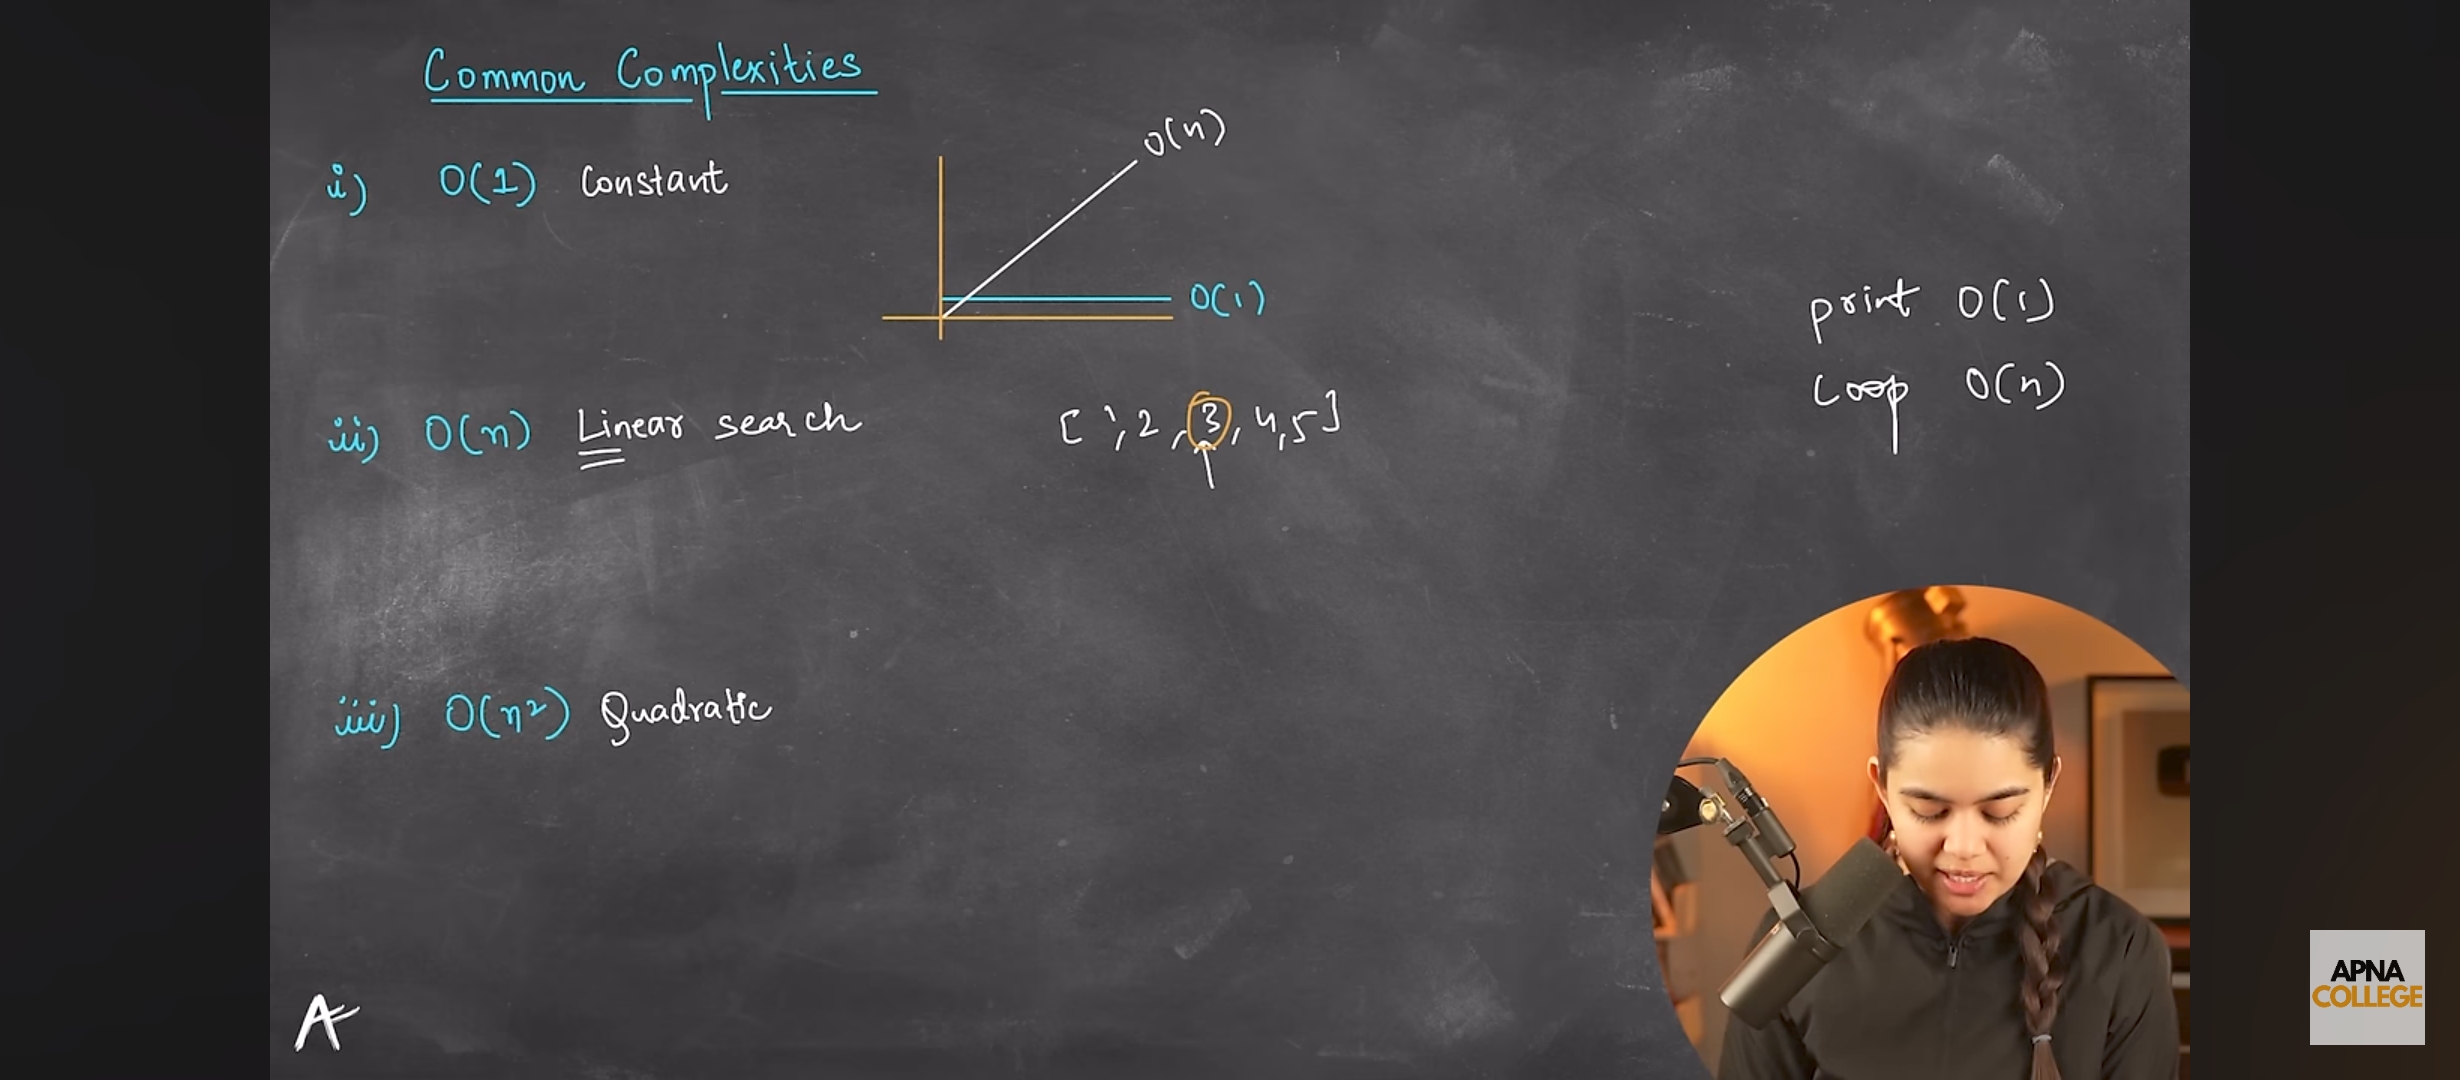 Common Complexities
i) O(1) Constant
O(n)
O(1)
print O(1)
loop O(n)
ii) O(n) Linear search
[1,2,3,4,5]
iii) O(n²) Quadratic
A
APNA
COLLEGE